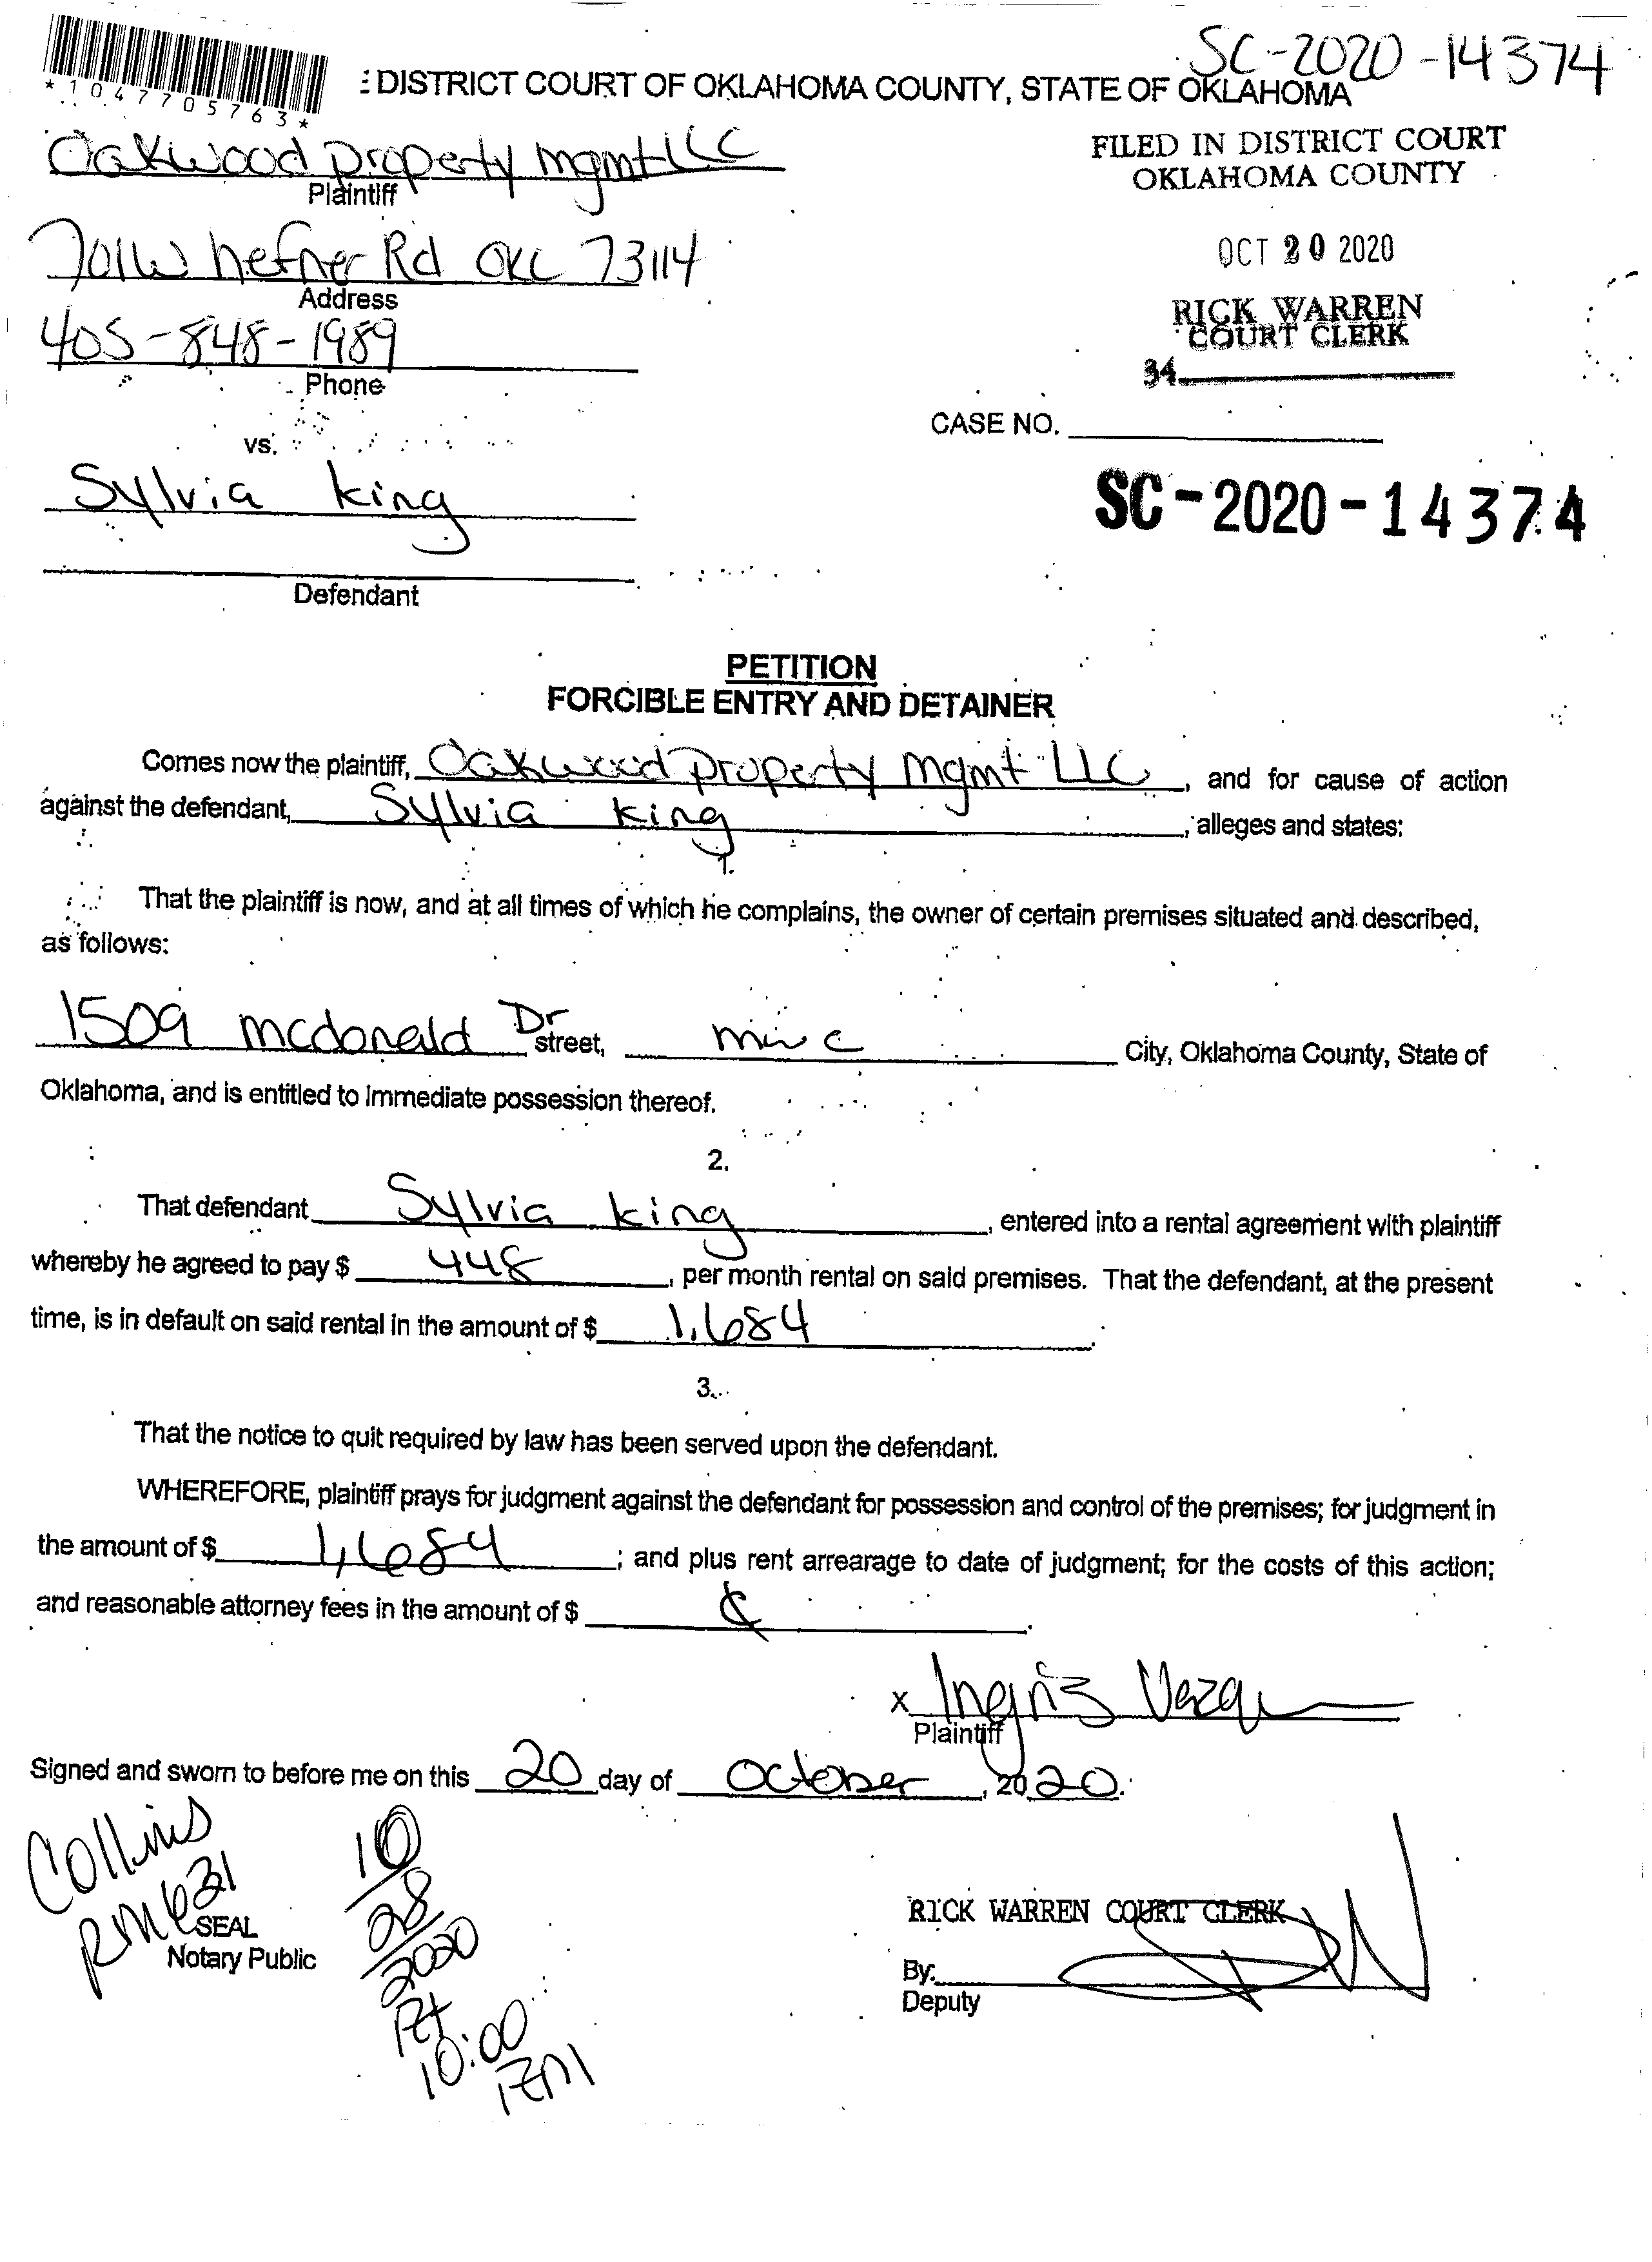 SC-2020-14374
*1047705763*
: DISTRICT COURT OF OKLAHOMA COUNTY, STATE OF OKLAHOMA
Oakwood property mgmt LLC
Plaintiff
FILED IN DISTRICT COURT
OKLAHOMA COUNTY
701 W hefner Rd OKC 73114
Address
OCT 20 2020
405-848-1989
Phone
RICK WARREN
COURT CLERK
34
vs.
CASE NO.
Sylvia king
SC-2020-14374
Defendant
PETITION
FORCIBLE ENTRY AND DETAINER
Comes now the plaintiff, Oakwood property mgmt LLC, and for cause of action
against the defendant, Sylvia king, alleges and states:
1.
That the plaintiff is now, and at all times of which he complains, the owner of certain premises situated and described,
as follows:
1509 mcdonald Dr street, mwc City, Oklahoma County, State of
Oklahoma, and is entitled to immediate possession thereof.
2.
That defendant Sylvia king, entered into a rental agreement with plaintiff
whereby he agreed to pay $ 448, per month rental on said premises. That the defendant, at the present
time, is in default on said rental in the amount of $ 1,684.
3.
That the notice to quit required by law has been served upon the defendant.
WHEREFORE, plaintiff prays for judgment against the defendant for possession and control of the premises; for judgment in
the amount of $ 1,684; and plus rent arrearage to date of judgment; for the costs of this action;
and reasonable attorney fees in the amount of $
x Ingris
Plaintiff
Signed and sworn to before me on this 20 day of October, 2020.
Collins
RM 621
SEAL
Notary Public
10
28
2020
At
10:00
AM
RICK WARREN COURT CLERK
By:
Deputy